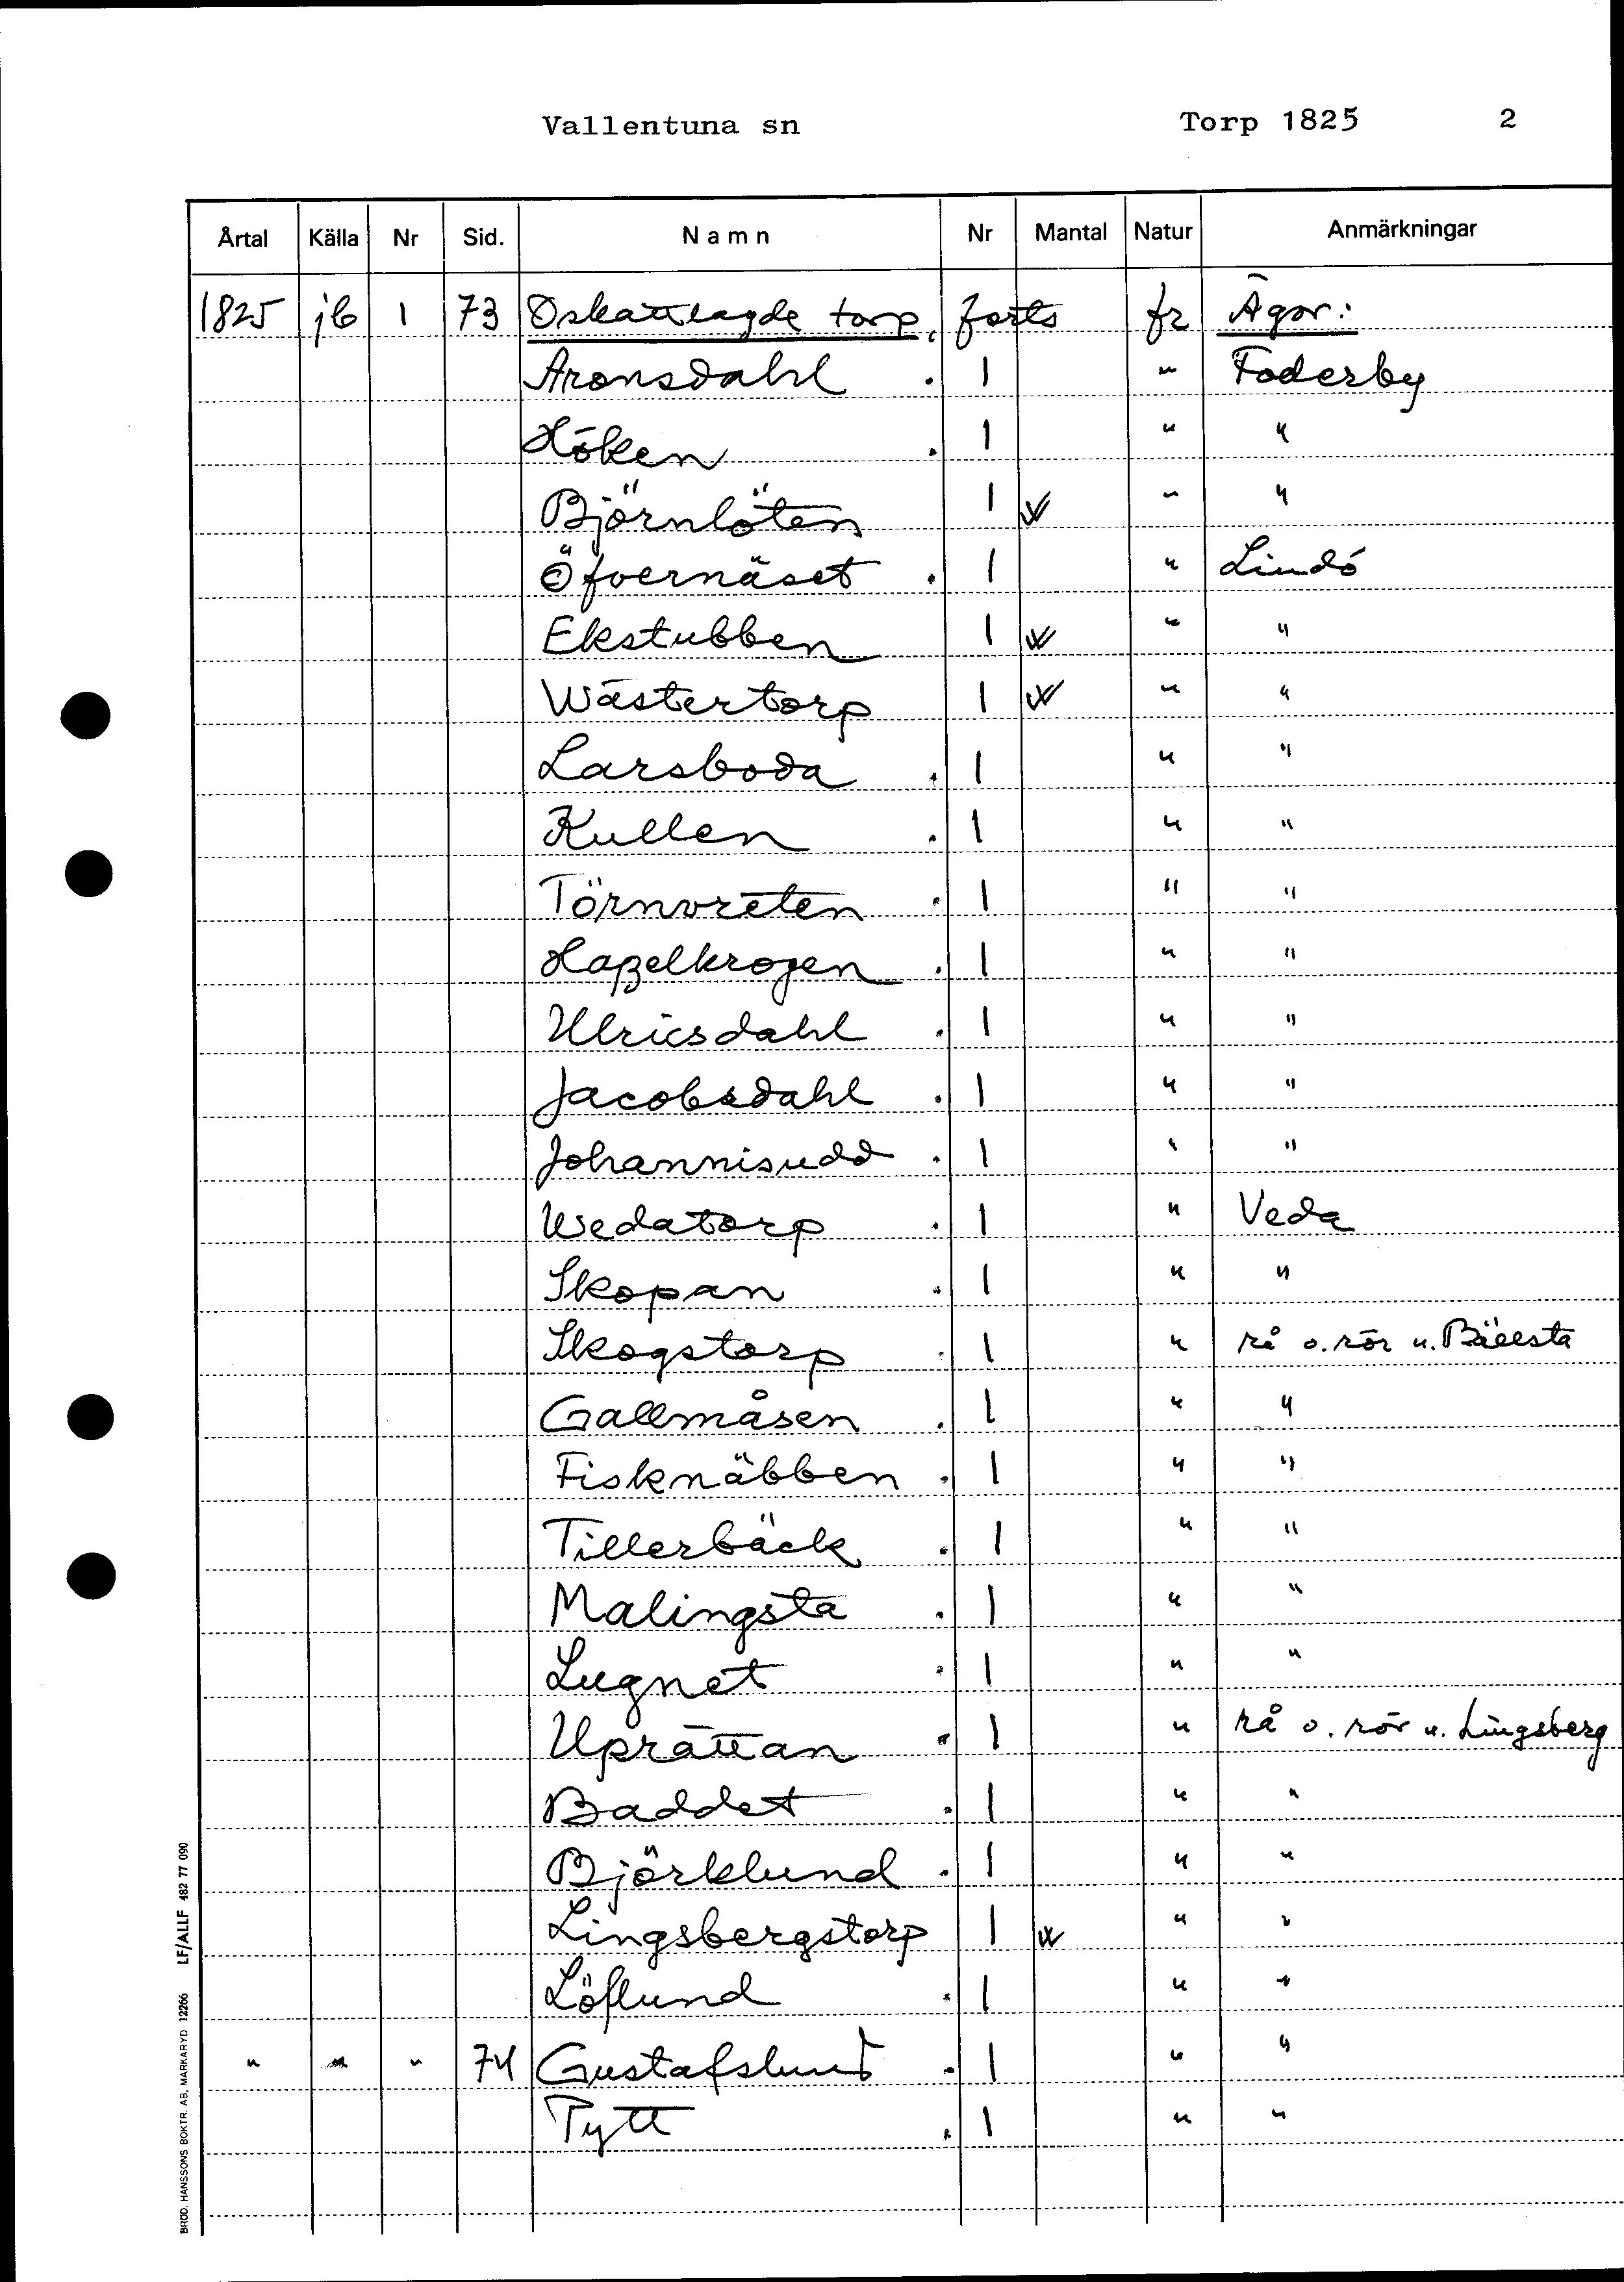 Vallentuna sn Torp 1825 2
Årtal Källa Nr Sid. Namn Nr Mantal Natur Anmärkningar
1825 jb 1 73 Oskattlagde torp, forts fr Ägor:
Aronsdahl . 1 " Foderby
Höken . 1 " "
Björnlöten 1 " "
Öfvernäset . 1 " Lindö
Ekstubben 1 " "
Wästertorp 1 " "
Larsboda . 1 " "
Kullen . 1 " "
Törnvreten . 1 " "
Haßelkrogen . 1 " "
Ulricsdahl . 1 " "
Jacobsdahl . 1 " "
Johannisudd . 1 " "
Wedatorp . 1 " Veda
Skopan . 1 " "
Skogstorp . 1 " rå o. rör u. Bällsta
Gallmåsen . 1 " "
Fisknäbben . 1 " "
Tillerbäck . 1 " "
Malingsta . 1 " "
Lugnet . 1 " "
Uprättan . 1 " rå o. rör u. Lingsberg
Baddet . 1 " "
Björklund . 1 " "
Lingsbergstorp 1 " "
Löflund . 1 " "
" " " 74 Gustafslund . 1 " "
Pytt . 1 " "
BRÖD. HANSSONS BOKTR. AB, MARKARYD 12266 LF/ALLF 482 77 090